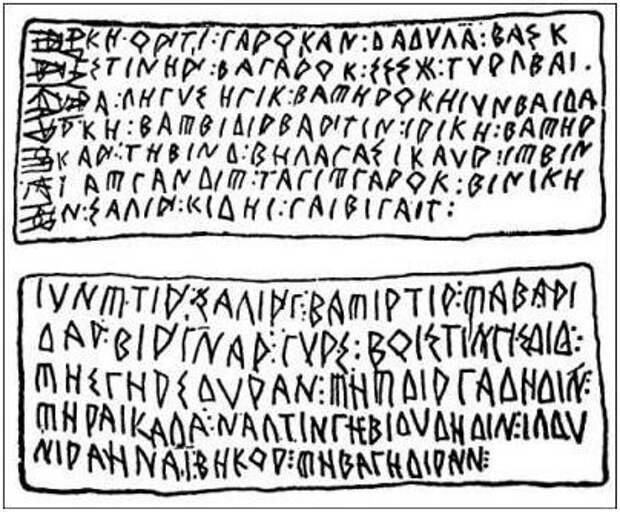 ΙΡΙΚΗ:ΟΡΤΙ:ΓΑΡΟΚΑΝ:ΔΑΔΥΛΑ:ΒΑΣΚ
ΒΥΙΣΤΙΝΗΡ:ΒΑΓΑΡΟΚ:ΣΣΣΧ:ΤΥΡΛΒΑΙ.
ΛΥΡΑ:ΛΗΓΥΣΗΓΙΚ:ΒΑͲΗΡΟΚΗΙΥΝΒΑΙΔΑ
ΥΡΚΗ:ΒΑͲΒΙΔΙΡΒΑΡΤΙΝ:ΙΡΙΚΗ:ΒΑͲΗΡ
ΟΚΑΡ:ΤΗΒΙΝΔ:ΒΗΛΑΓΑΣΙΚΑΥΡ:ΙͲΒΙΝ
ΑΙ:ΑͲΓΑΝΔΙͲ:ΤΑΓΙͲΓΑΡΟΚ:ΒΙΝΙΚΗ
ΒΙΝ:ΣΑΛΙΡ:ΚΙΔΗΙ:ΓΑΙΒΙΓΑΙΤ:
ΙΥΝͲΤΙΡ:ΣΑΛΙΡΓ:ΒΑͲΙΡΤΙΡ:ͲΑΒΑΡΙ
ΔΑΡ:ΒΙΡΙΝΑΡ:ΓΥΡΣ:ΒΟΙΣΤΙΝΓΙΣΔΙΔ:
ͲΗΣΓΗΡΣΔΥΡΑΝ:ͲΗͲΔΙΡΓΑΔΗΔΙΝ:
ͲΗΡΑΙΚΑΛΑ:ΝΑΛΤΙΝΓΗ:ΒΙΔΥΔΗΔΙΝ:ΙΛΔΥ
ΝΙΡΑΗΝΑΙ:ΒΗΚΟΡ:ͲΗΒΑΓΗΔΙΡΑΝ: